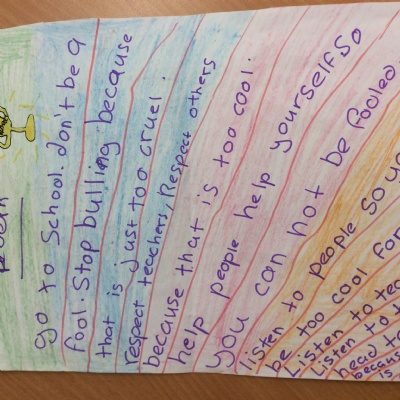 go to School. don't be a
fool. Stop bulling because
that is just too cruel.
respect teachers, Respect others
because that is too cool.
help people help yourself so
you can not be fooled
listen to people so yo
be too cool for
Listen to tea
Listen to t
head t
because
is